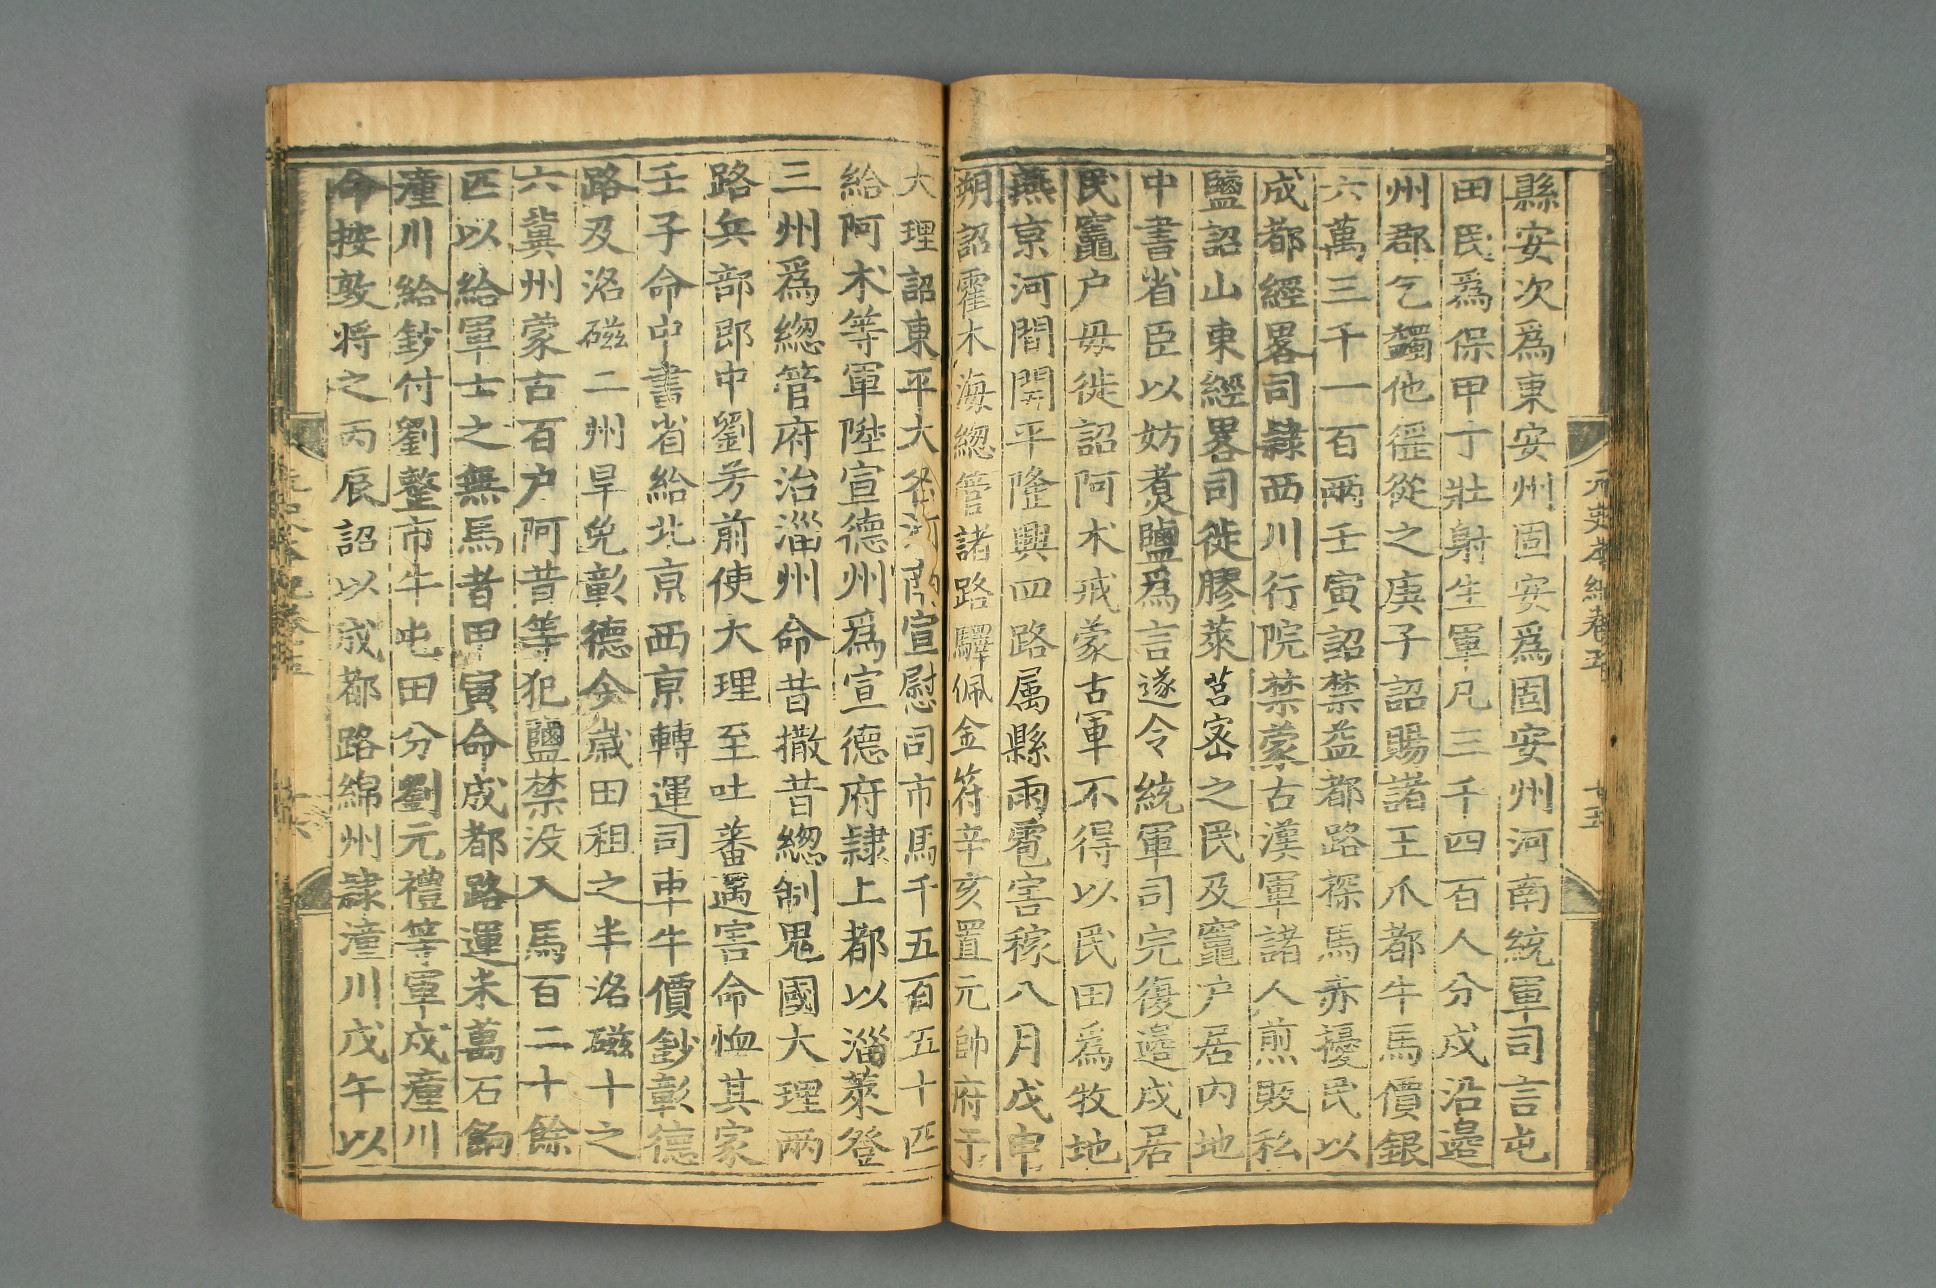 縣安次爲東安州固安爲固安州河南統軍司言屯
田民爲保甲丁壯射生軍凡三千四百人分戍沿邉
州郡乞蠲他徭從之庚子詔賜諸王爪都牛馬價銀
六萬三千一百兩壬寅詔禁益都路探馬赤擾民以
成都經畧司隷西川行院禁蒙古漢軍諸人煎販私
鹽詔山東經畧司徙膠萊莒宻之民及竈户居内地
中書省臣以妨煮鹽爲言遂令統軍司完復邉戍居
民竈户毋徙詔阿术戒蒙古軍不得以民田爲牧地
燕亰河間開平隆興四路属縣雨雹害稼八月戊申
朔詔霍木海緫管諸路驛佩金符辛亥置元帥府于
大理詔東平大名河南宣慰司市馬千五百五十匹
給阿术等軍陞宣德州爲宣德府隷上都以淄萊登
三州爲緫管府治淄州命昔撒昔緫制鬼國大理兩
路兵部郎中劉芳前使大理至吐蕃遇害命恤其家
壬子命中書省給北亰西亰轉運司車牛價鈔彰德
路及洺磁二州旱免彰德今歲田租之半洺磁十之
六冀州蒙古百户阿昔等犯鹽禁没入馬百二十餘
匹以給軍士之無馬者甲寅命成都路運米萬石餉
潼川給鈔付劉整市牛屯田分劉元禮等軍戍潼川
命按敦将之丙辰詔以成都路綿州隷潼川戊午以
元史本紀卷五
廿五